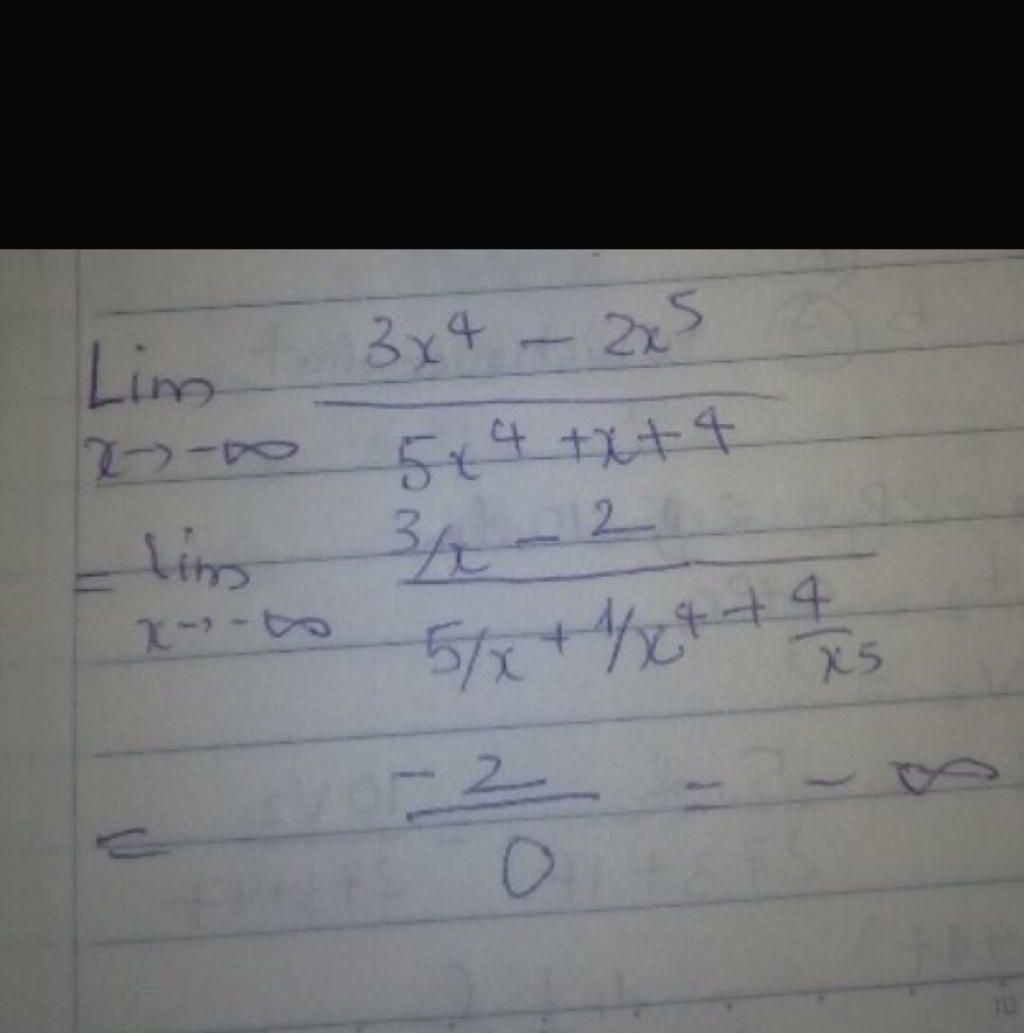 Lim x→-∞ (3x⁴ - 2x⁵)/(5x⁴ + x + 4)
= lim x→-∞ (3/x - 2)/(5/x + 1/x⁴ + 4/x⁵)
= -2/0 = -∞